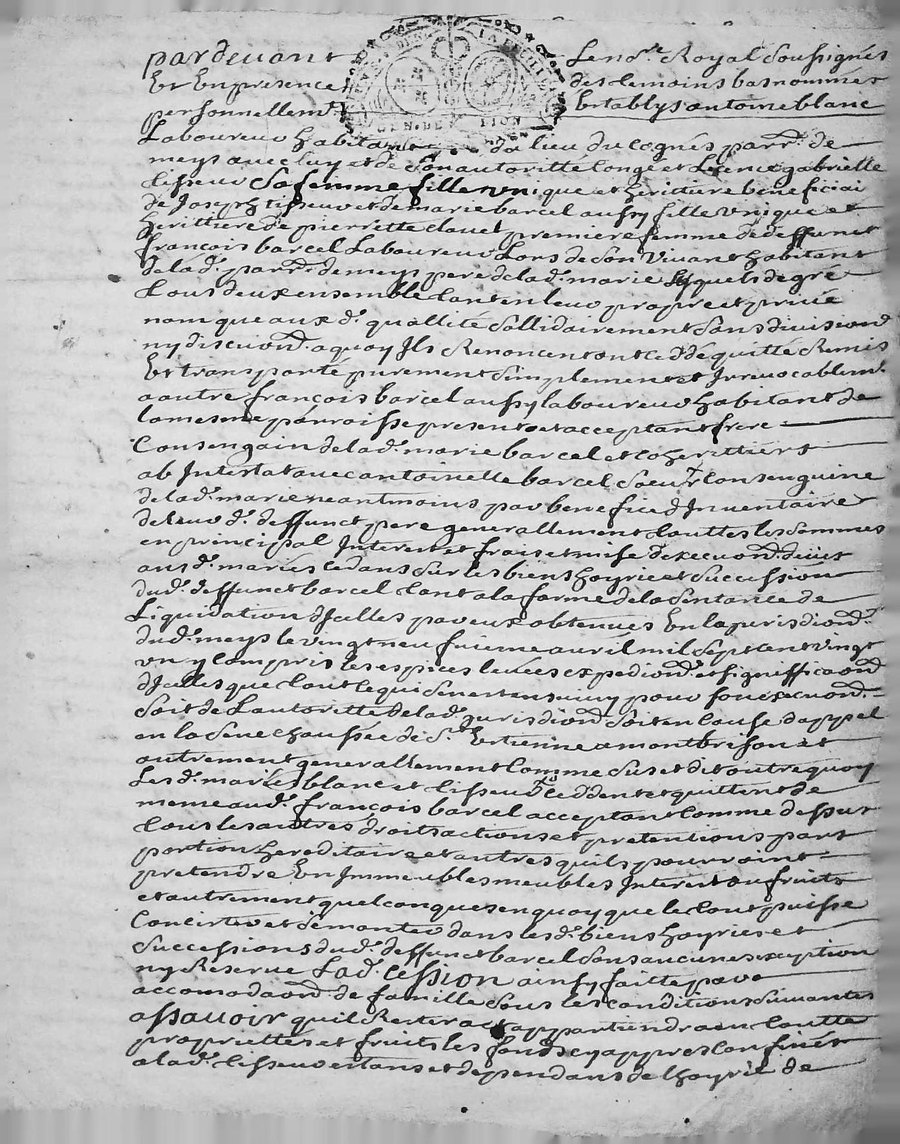 pardevant Le no.re Royal Soussignés
Et En presence des temoins bas nommes
personnellem.t Establys antoine blanc
GEN. DE LION
Laboureur habitant du lieu du cognés parr.e de
meys avec luy et de Son autoritté Congé et Licence gabrielle
tisseur Sa femme fille unique et heritiere beneficiai
de Joseph tisseur et de marie barcel aussy fille Unique et
heritiere de pierrette clavel premiere femme de deffunct
françois barcel Laboureur Lors de Son Vivant habitant
de lad. parr.e de meys pere de lad. marie Lesquels de gre
tous deux ensemble tant en leur propre et privé
nom que aux d. quallité Sollidairement Sans division
ny discuon a quoy Ils Renoncent ont ceddé quitté Remis
Et transporté purement Simplement et Irrevocablem.t
a autre françois barcel aussy laboureur habitant de
la mesme parroisse present et acceptant frere
Consengain de lad. marie barcel et coheritiers
ab Intestat avec antoinette barcel Soeur Consenguine
de lad. marie neantmoins par benefice d Inventaire
de leur d. deffunct pere generallement touttes les Sommes
en principal Interest et frais et mise dexecuon deües
aus d. mariés cedans Sur les biens hoyrie et Succession
dud. deffunct barcel tant a la forme de la Sentance de
Liquidation d Jcelles par eux obtenues En la jurisdiond
dud. meys le vingt neufvieme avril mil Sept cent vingt
un y compris les espices levées expedion et signifficaon
d Jcelles que tout ce qui Sen est ensuivy pour Son execuon
Soit de Lautoritte de lad. jurisdion Soit en Cause dappel
en la Senechaussée de S.t Estienne a montbrison et
autrement generallement Comme Sus et dit outre quoy
Les d. mariés blanc et tisseur ceddent et quittent de
meme aud. françois barcel acceptant Comme dessus
tous les autres droits actions et pretentions part
portion hereditaire et autres quils pourroint
pretendre En Immeubles meubles Interest ou fruits
et autrement quelconques en quoy que le tout puisse
Concister et se monter dans les d. biens hoyries et
Successions dud. deffunct barcel Sans aucunes exception
ny Reserve Lad. cession ainsy faitte par
accomodaon de famille Sous les conditions Suivantes
assavoir quil Restera et appartiendra en toutte
proprietes et fruits les fonds cy appres confinés
a lad. tisseur estans et dependans de lhoyrie de